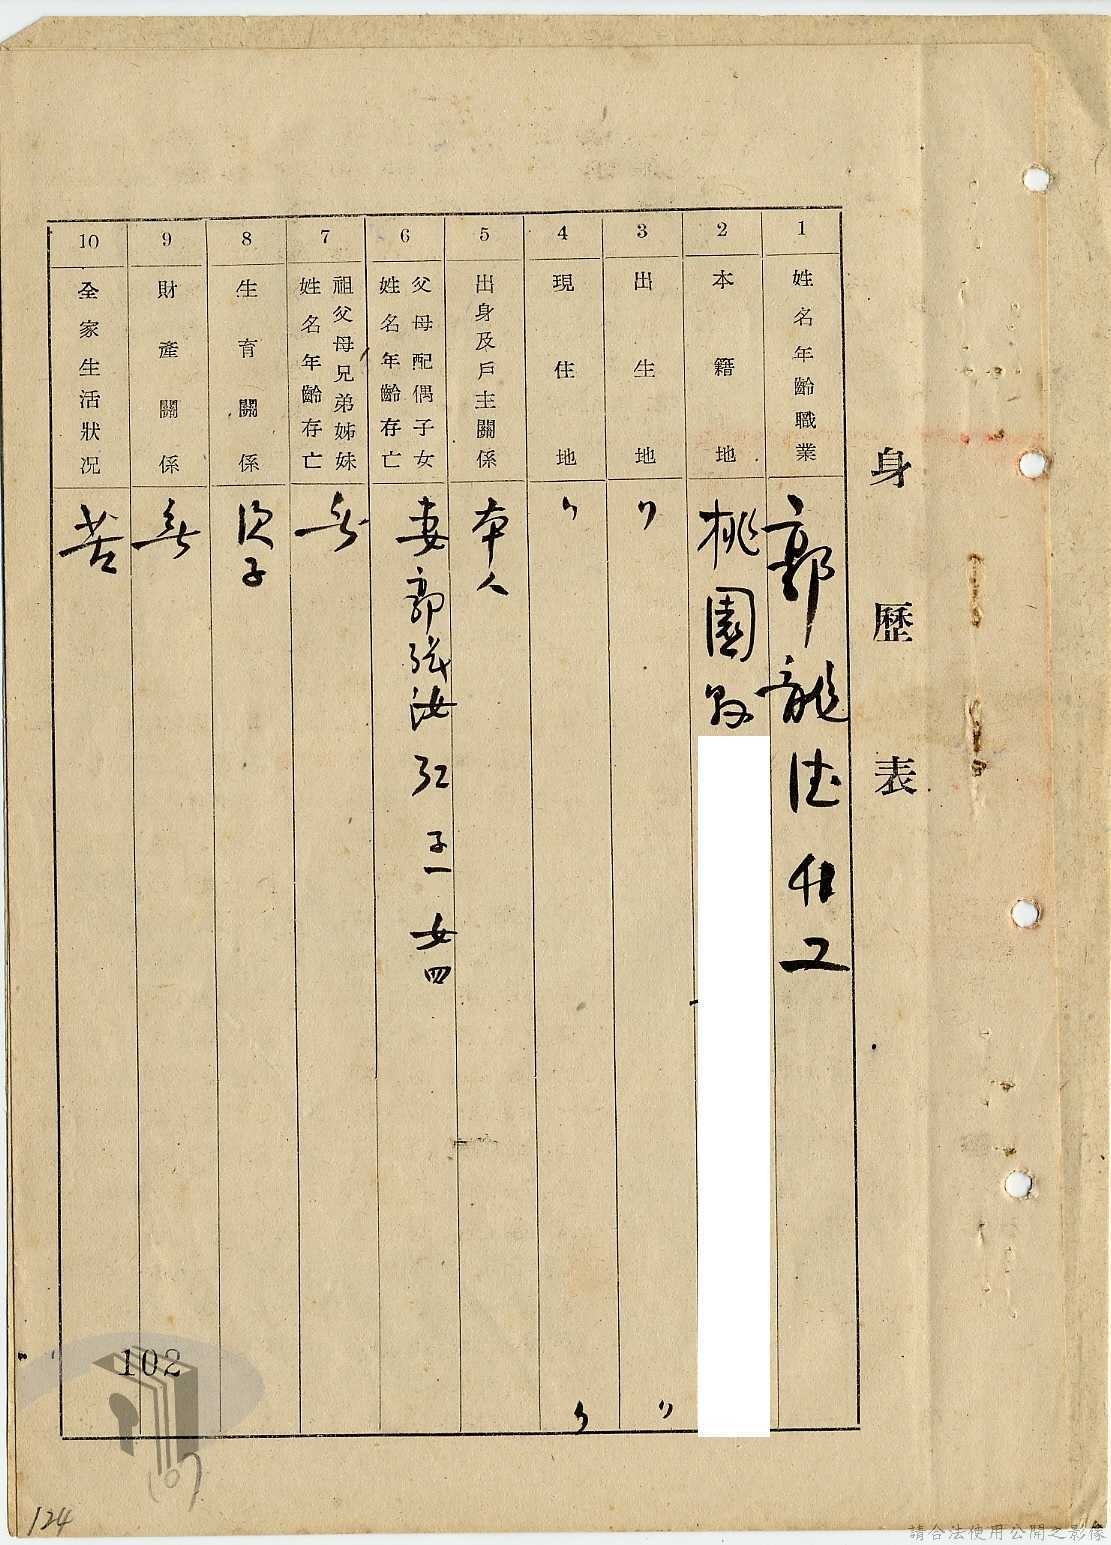 身歷表
1
姓名年齡職業
郭龍德 卅 工
2
本籍地
桃園縣
3
出生地
〃
〃
4
現住地
〃
〃
5
出身及戶主關係
本人
6
父母配偶子女
姓名年齡存亡
妻郭 汝 子一 女四
7
祖父母兄弟姊妹
姓名年齡存亡
無
8
生育關係
次子
9
財產關係
無
10
全家生活狀况
苦
102
107
124
請合法使用公開之影像